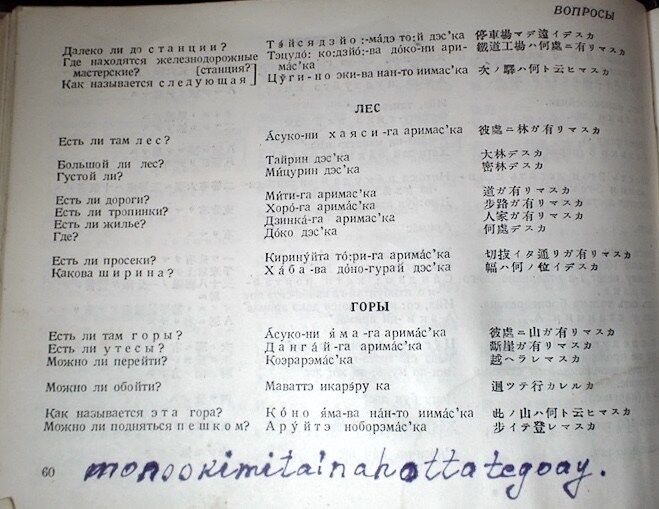 ВОПРОСЫ
Далеко ли до станции? Тэйсядзйо:-мадэ то:й дэс'ка 停車場マデ遠イデスカ
Где находятся железнодорожные мастерские? Тэцудо: ко:дзйо:-ва до́ко-ни арима́с'ка 鐵道工場ハ何處ニ有リマスカ
Как называется следующая [станция?] Цу́ги-но эки-ва нан-то иимас'ка 次ノ驛ハ何ト云ヒマスカ
ЛЕС
Есть ли там лес? А́суко-ни хаяси-га аримас'ка 彼處ニ林ガ有リマスカ
Большой ли лес? Тайрин дэс'ка 大林デスカ
Густой ли? Ми́цурин дэс'ка 密林デスカ
Есть ли дороги? Ми́ти-га аримас'ка 道ガ有リマスカ
Есть ли тропинки? Хоро́-га арима́с'ка 步路ガ有リマスカ
Есть ли жилье? Дзинка́-га аримас'ка 人家ガ有リマスカ
Где? До́ко дэс'ка 何處デスカ
Есть ли просеки? Кирину́йта то:ри-га арима́с'ка 切拔イタ通リガ有リマスカ
Какова ширина? Ха́ба-ва до́но-гурай дэс'ка 幅ハ何ノ位イデスカ
ГОРЫ
Есть ли там горы? А́суко-ни яма-га арима́с'ка 彼處ニ山ガ有リマスカ
Есть ли утесы? Данга́й-га арима́с'ка 斷崖ガ有リマスカ
Можно ли перейти? Коэрарэма́с'ка 越ヘラレマスカ
Можно ли обойти? Маваттэ икарэ́ру ка 廻ツテ行カレルカ
Как называется эта гора? Ко́но я́ма-ва на́н-то иима́с'ка 此ノ山ハ何ト云ヒマスカ
Можно ли подняться пешком? Ару́йтэ ноборэма́с'ка 步イテ登レマスカ
60 monookimitainahottategoay.